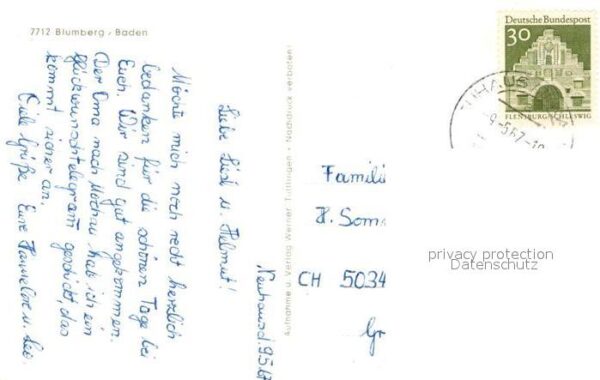 7712 Blumberg, Baden
Neuhausd. 9.5.67
Liebe Lisl u. Helmut!
Möchte mich noch recht herzlich
bedanken für die schönen Tage bei
Euch. Wir sind gut angekommen.
Der Oma nach habe ich ein
Glückwunschtelegramm geschickt, das
kommt sicher an.
Viele Grüße Eure Hannelore u. Leo.
Aufnahme u. Verlag Werner Tuttlingen · Nachdruck verboten!
Deutsche Bundespost
30
FLENSBURG/SCHLESWIG
-9-5.67-10
Famili
H. Som
CH 5034
Gr
privacy protection
Datenschutz